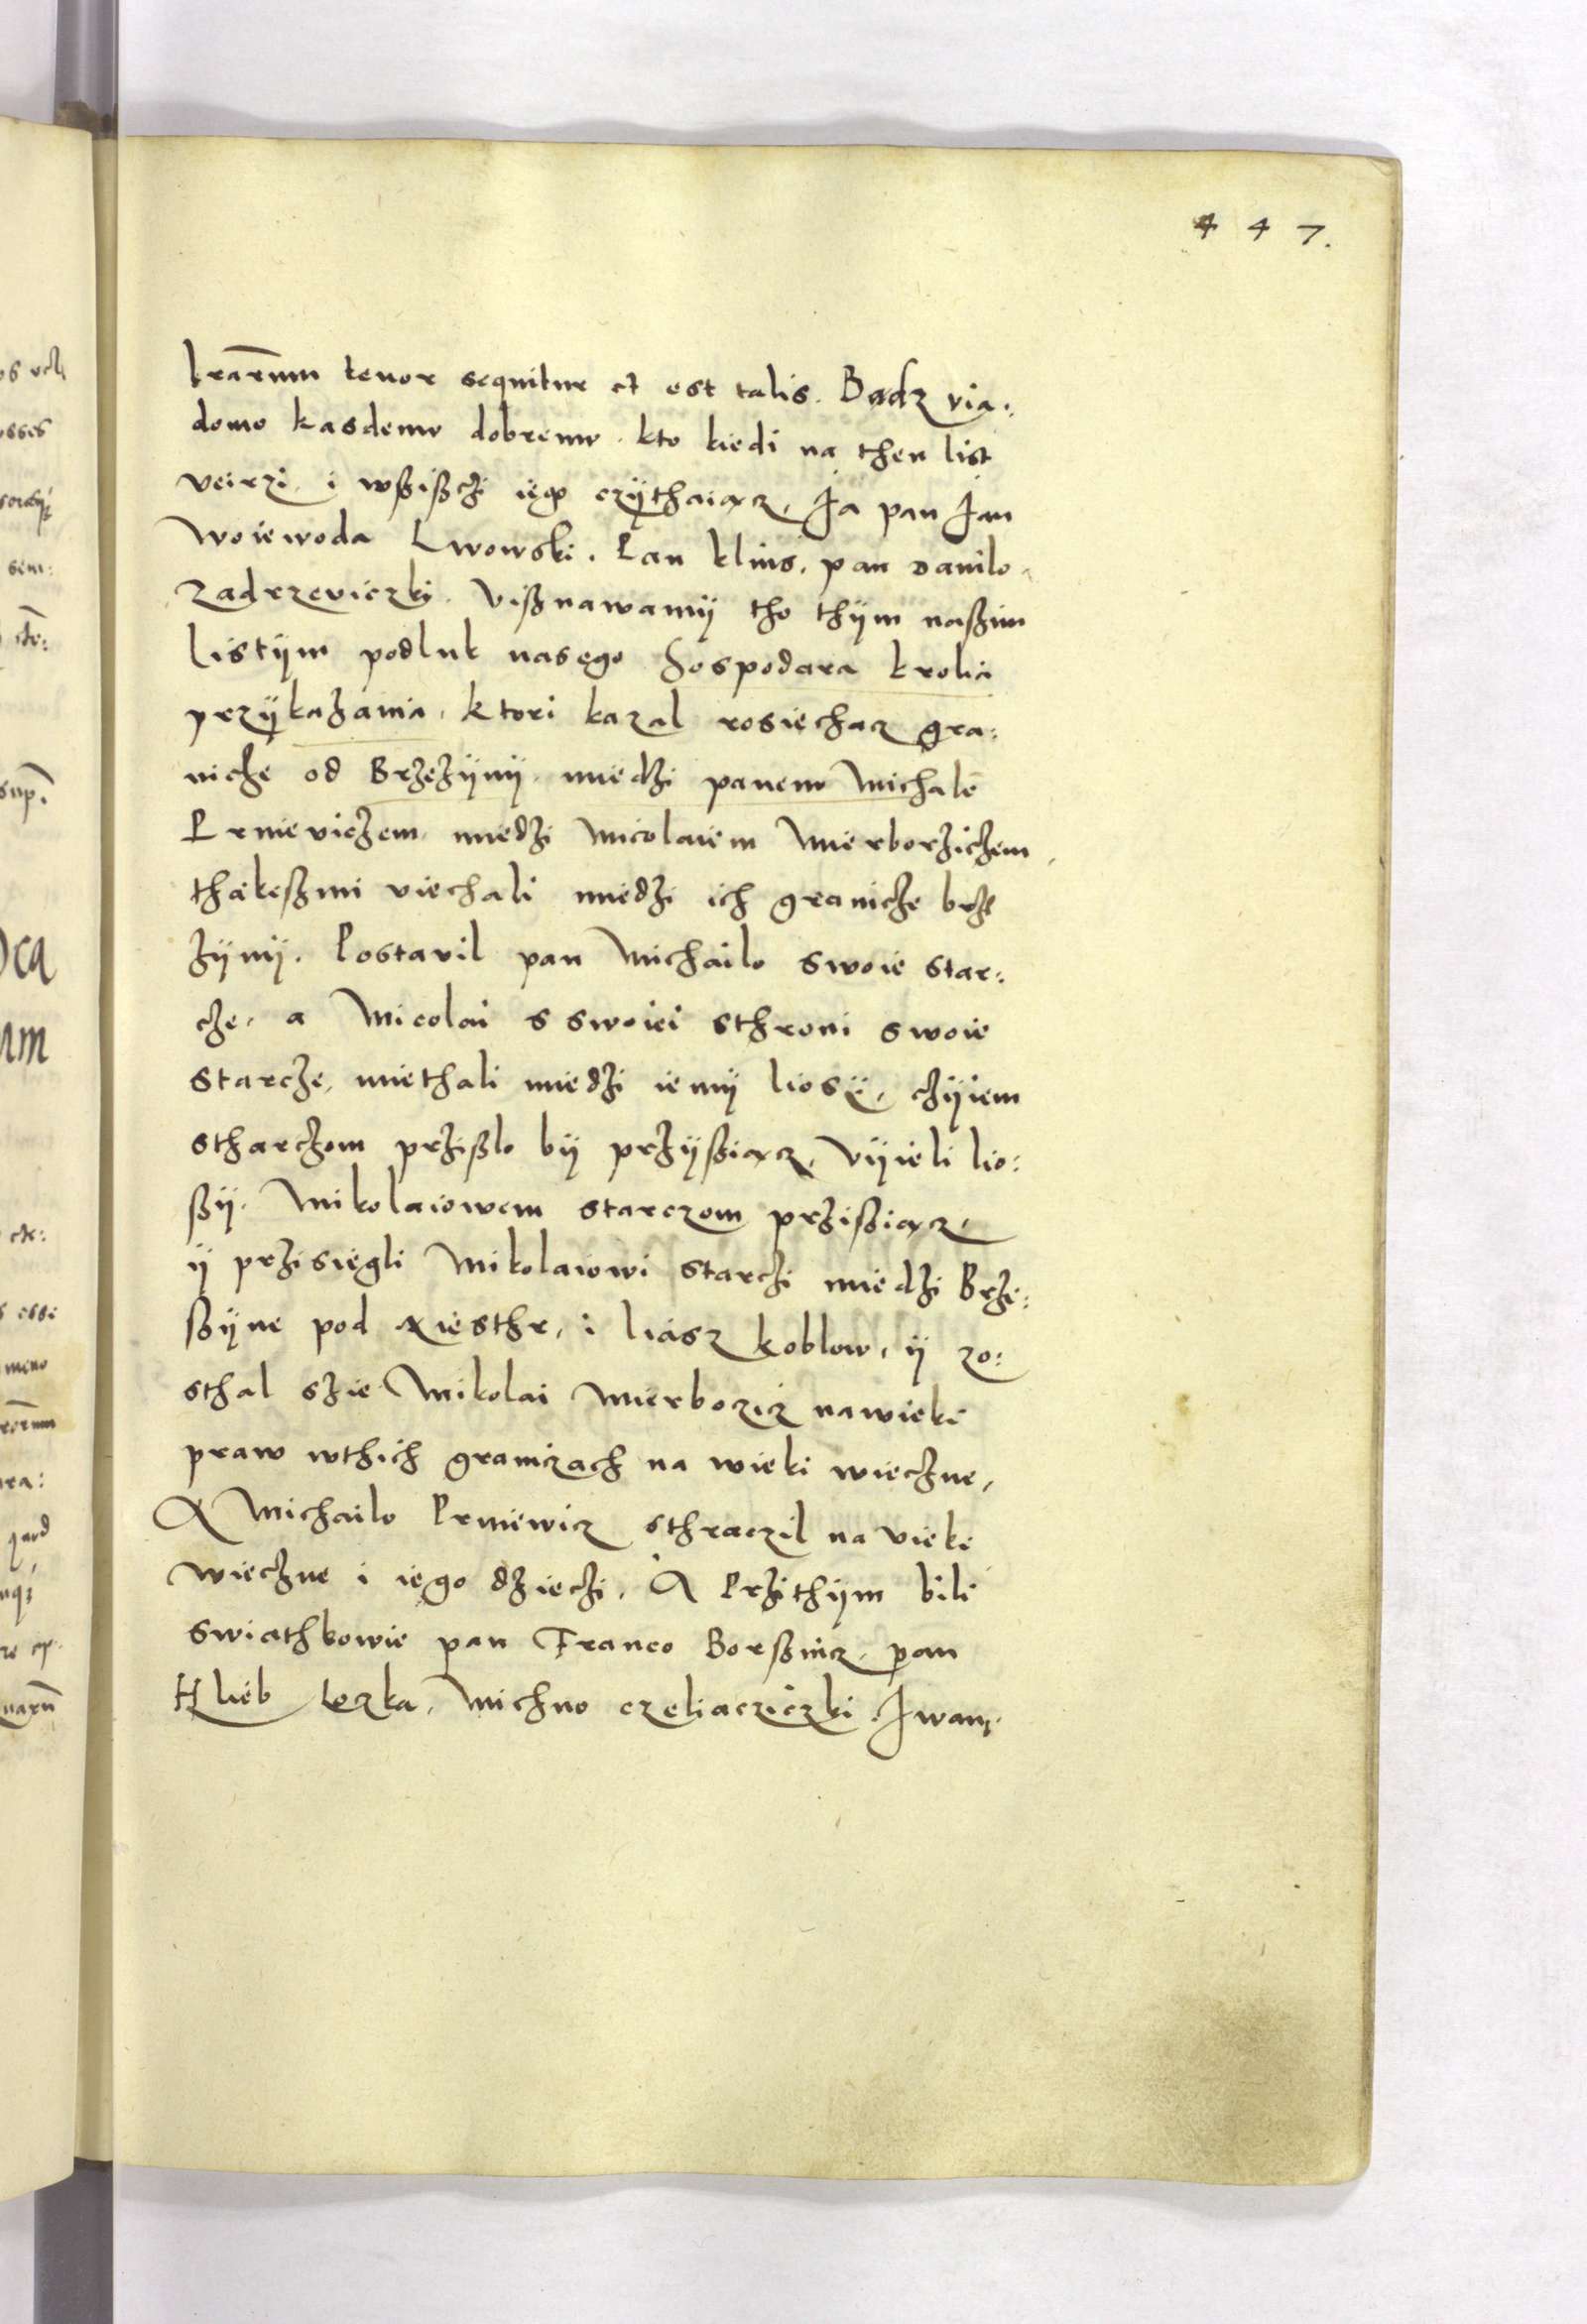 447.
lrarum tenor sequitur et est talis. Bądz via:
domo kasdemv dobremv. kto kiedi na then list
veirzi. i wßißcżi iego czÿthaiącz. Ja pan Jan
Woiewoda Lwowski. Pan klius. pan Danilo
Zadrzeviczki. vißnawamÿ tho thÿm naßim
listÿm podluk nasego Hospodara krolia
przÿkażania. ktori kazal rosiechacz gra:
nicże od Brżeżÿnÿ. miedżi panem Michalē
Prnieviczem. miedżi Micolaiem Mierborżiczem,
thakeßmi viechali miedżi ich granicże brże
żÿnÿ. Postavil pan Michailo swoie star:
cże, a Micolai s swoiei sthroni swoie
starcże, miethali miedżi iemÿ liosÿ, cżÿiem
stharcżom prżißlo bÿ prżÿßiącz, vÿieli lio:
ßÿ. Mikolaiowem starczom prżißiącz,
ÿ prżisiegli Mikolaiowi starcżi miedżi Brże:
ßÿne pod xiesthr, i liasz koblow, ÿ zo:
sthal szie Mikolai Mierbozicz nawieki
praw wthich graniczach na wieki wiecżne,
A Michailo Prniewicz sthraczil na vieki
wiecżne i iego dżiecżi. A Prżithÿm bili
swiathkowie pan Franco Borßnicz, pan
Hlieb lozka, Michno czeliacziczki. Iwan